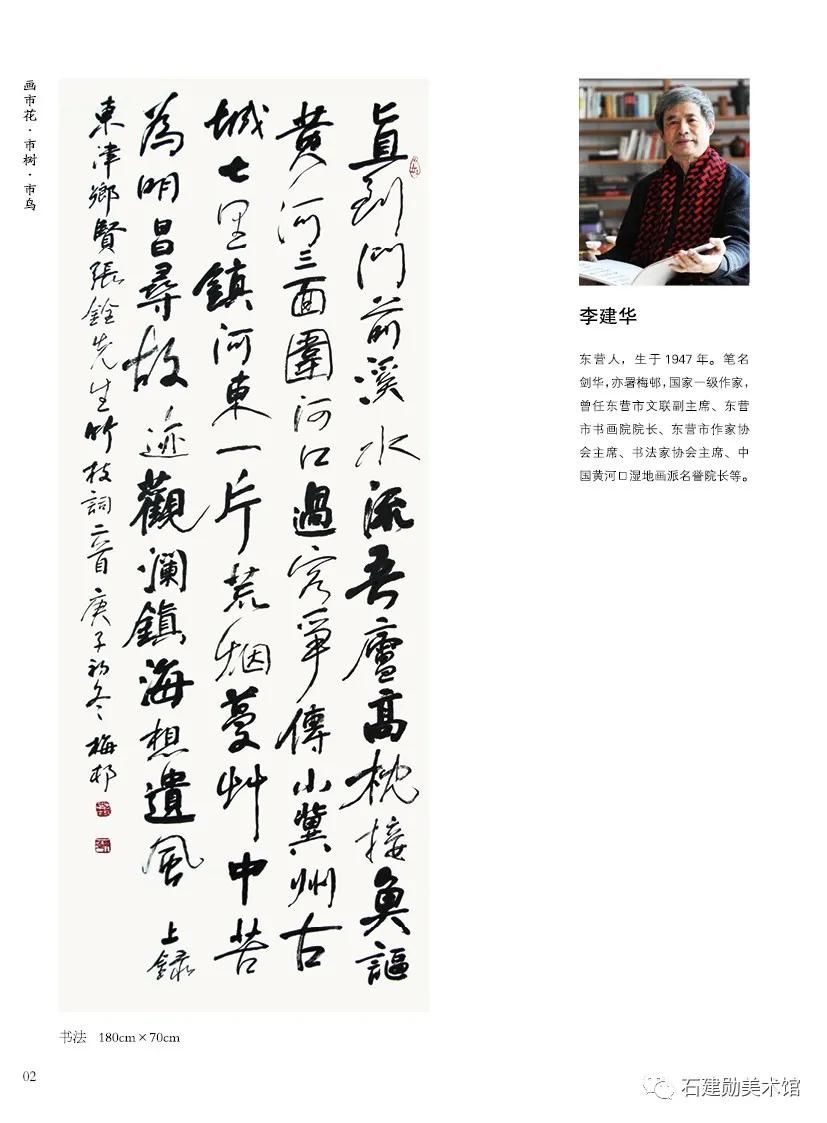 画市花·市树·市鸟
直到門前溪水流吾廬高枕接魚謳
黄河三面圍河口過客爭傳小冀州古
城七里鎮河東一片荒烟蔓艸中苦
為明昌尋故迹觀瀾鎮海想遺風 上録
東津鄉賢張銓先生竹枝詞二首 庚子初冬 梅邨
李建华
东营人，生于1947年。笔名
剑华，亦署梅邨，国家一级作家，
曾任东营市文联副主席、东营
市书画院院长、东营市作家协
会主席、书法家协会主席、中
国黄河口湿地画派名誉院长等。
书法 180cm×70cm
02
石建勋美术馆